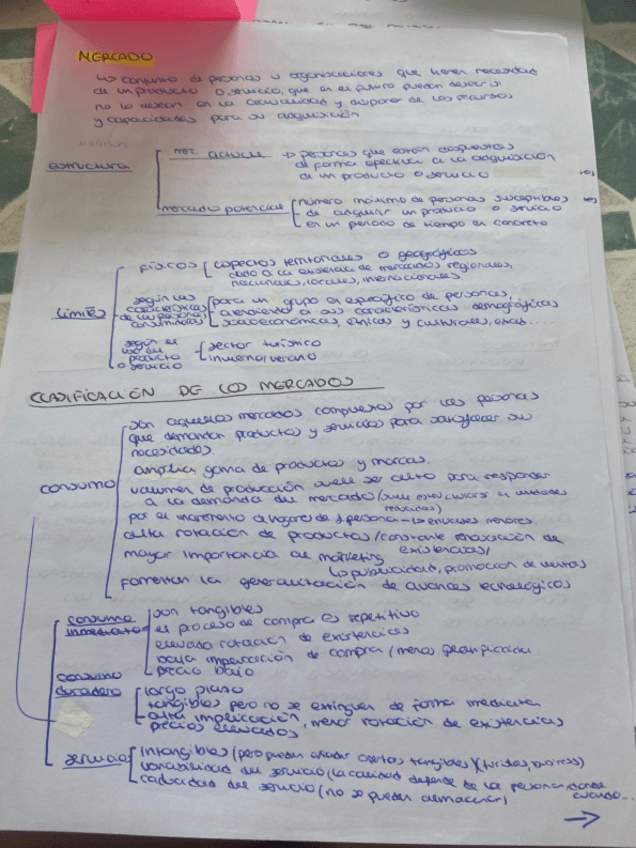 MERCADO
↳ conjunto de personas u organizaciones que tienen necesidad
de un producto o servicio, que en el futuro puedan desear si
no lo desean en la actualidad y disponer de los recursos
y capacidades para su adquisición
estructura
mer. actual → personas que están dispuestas
de forma efectiva a la adquisición
de un producto o servicio
mercado potencial número máximo de personas susceptibles
de adquirir un producto o servicio
en un periodo de tiempo en concreto
Límites
físicos aspectos territoriales o geográficos
dado a la existencia de mercados regionales,
nacionales, locales, internacionales.
según las características de las personas consumidoras
para un grupo en específico de personas,
atendiendo a sus características demográficas
socioeconómicas, étnicas y culturales, edad....
según el uso del producto o servicio
sector turístico
invierno/verano
CLASIFICACIÓN DE LOS MERCADOS
consumo
son aquellos mercados compuestos por las personas
que demandan productos y servicios para satisfacer sus
necesidades.
amplia gama de productos y marcas.
volumen de producción suele ser alto para responder
a la demanda del mercado
por el incremento a hogares de 1 persona → envases menores.
alta rotación de productos/constante renovación de
existencias/
mayor importancia al márketing
↳ publicidad, promoción de ventas
fomentan la generalización de avances tecnológicos
consumo inmediato
son tangibles
el proceso de compra es repetitivo
elevada rotación de existencias
baja implicación de compra/menos planificada
precio bajo
consumo duradero
largo plazo
tangibles pero no se extinguen de forma inmediata
alta implicación, menor rotación de existencias
precios elevados
servicios
intangibles (pero pueden añadir ofertas tangibles)
variabilidad del servicio (la calidad depende de la persona, donde
cuando...
caducidad del servicio (no se pueden almacenar)
→